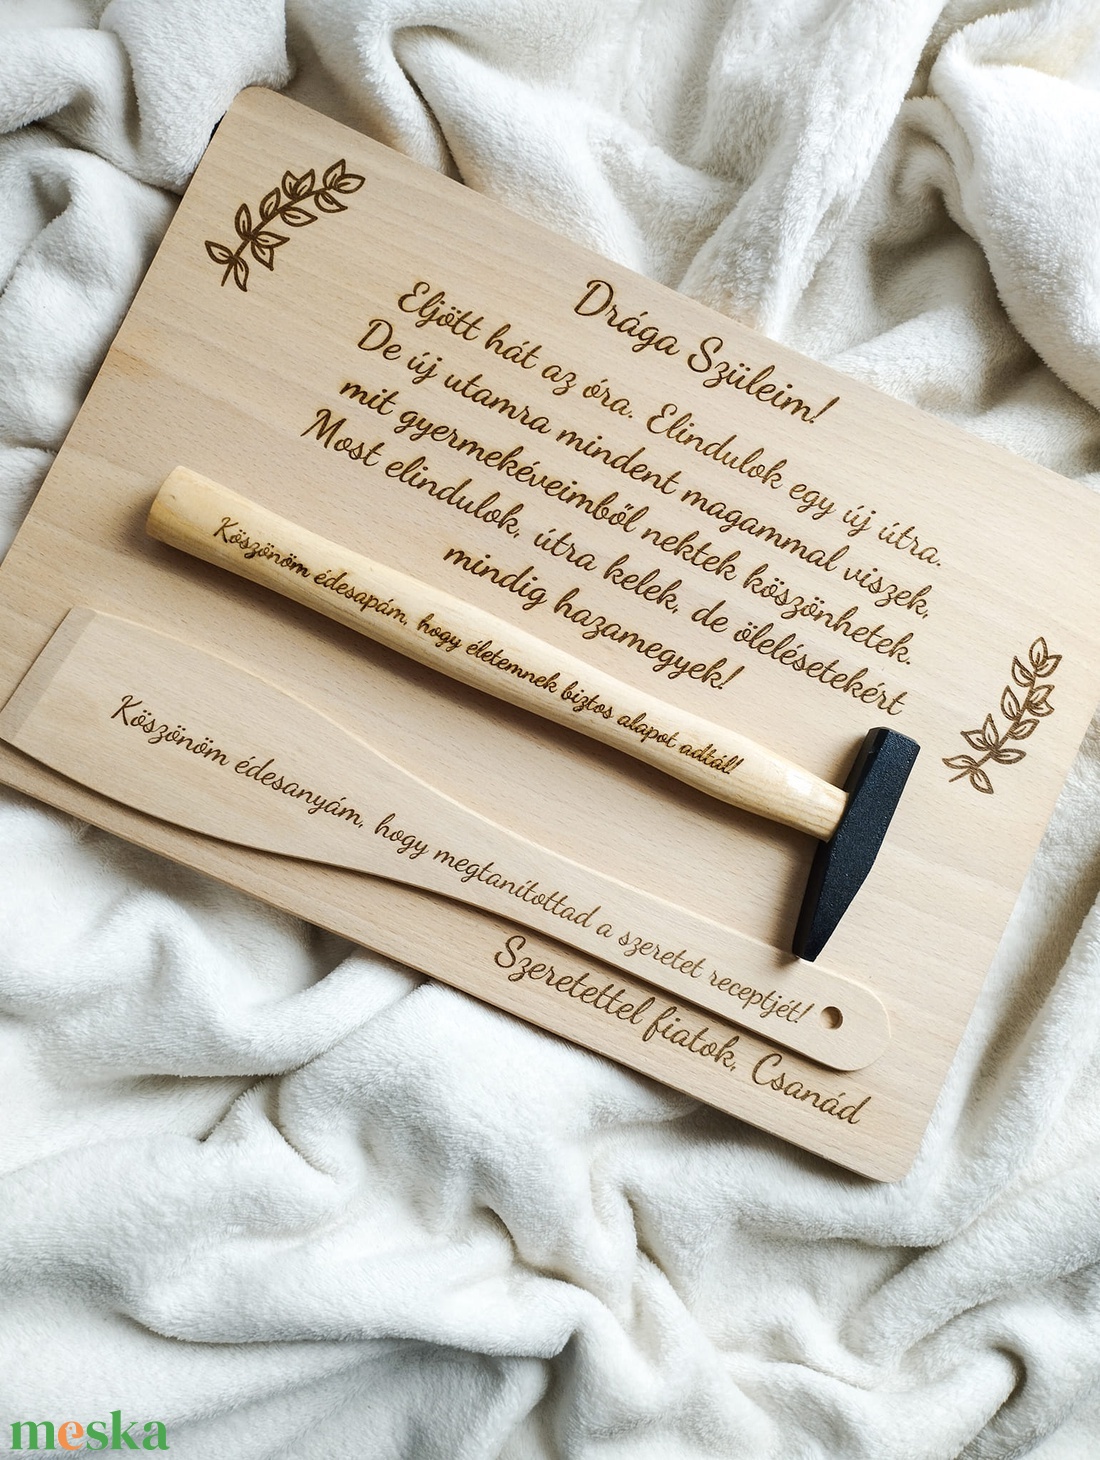 Drága Szüleim!
Eljött hát az óra. Elindulok egy új útra.
De új utamra mindent magammal viszek,
mit gyermekéveimből nektek köszönhetek.
Most elindulok, útra kelek, de ölelésetekért
mindig hazamegyek!
Köszönöm édesapám, hogy életemnek biztos alapot adtál!
Köszönöm édesanyám, hogy megtanítottad a szeretet receptjét!
Szeretettel fiatok, Csanád
meska